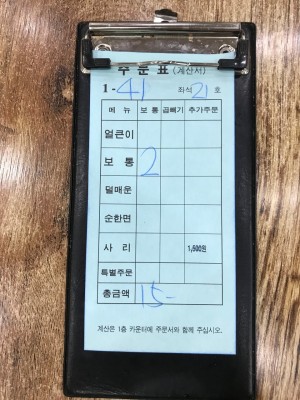 주 문 표 (계산서)
1 - 41 좌석 21 호
메 뉴 보 통 곱빼기 추가주문
얼큰이
보 통 2
덜매운
순한면
사 리 1,500원
특별주문
총금액 15-
계산은 1층 카운터에 주문서와 함께 주십시오.